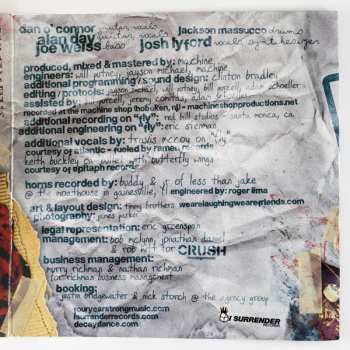 dan o'connor guitar, vocals jackson massucco drums
alan day guitar, vocals
joe weiss bass josh lyford vocals, synthesizer
produced, mixed & mastered by: machine
engineers: will putney, jayson michael, machine
additional programming/sound design: clinton bradley
editing / protools: will putney
assisted by:
recorded at the machine shop (hoboken, nj) - machineshopproductions.net
additional recording on "fly": red bull studios - santa monica, ca
additional engineering on "fly": eric
additional vocals by: travis mccoy on "fly"
courtesy of atlantic - fueled by ramen records
keith buckley on with butterfly wings
courtesy of epitaph records
horns recorded by: buddy & jr of less than jake
@ the moathouse in gainesville, fl engineered by: roger lima
art & layout design: tinny brothers wearelaughingwearefriends.com
photography: james parker
legal representation: eric greenspan
management: bob mclynn, jonathan daniel
& rob hitt for CRUSH
business management:
murry richman & nathan richman
for richman business management
booking:
justin bridgewater & nick storch @ the agency group
fouryearstrongmusic.com
isurrenderrecords.com
decaydance.com
SURRENDER
RECORDS